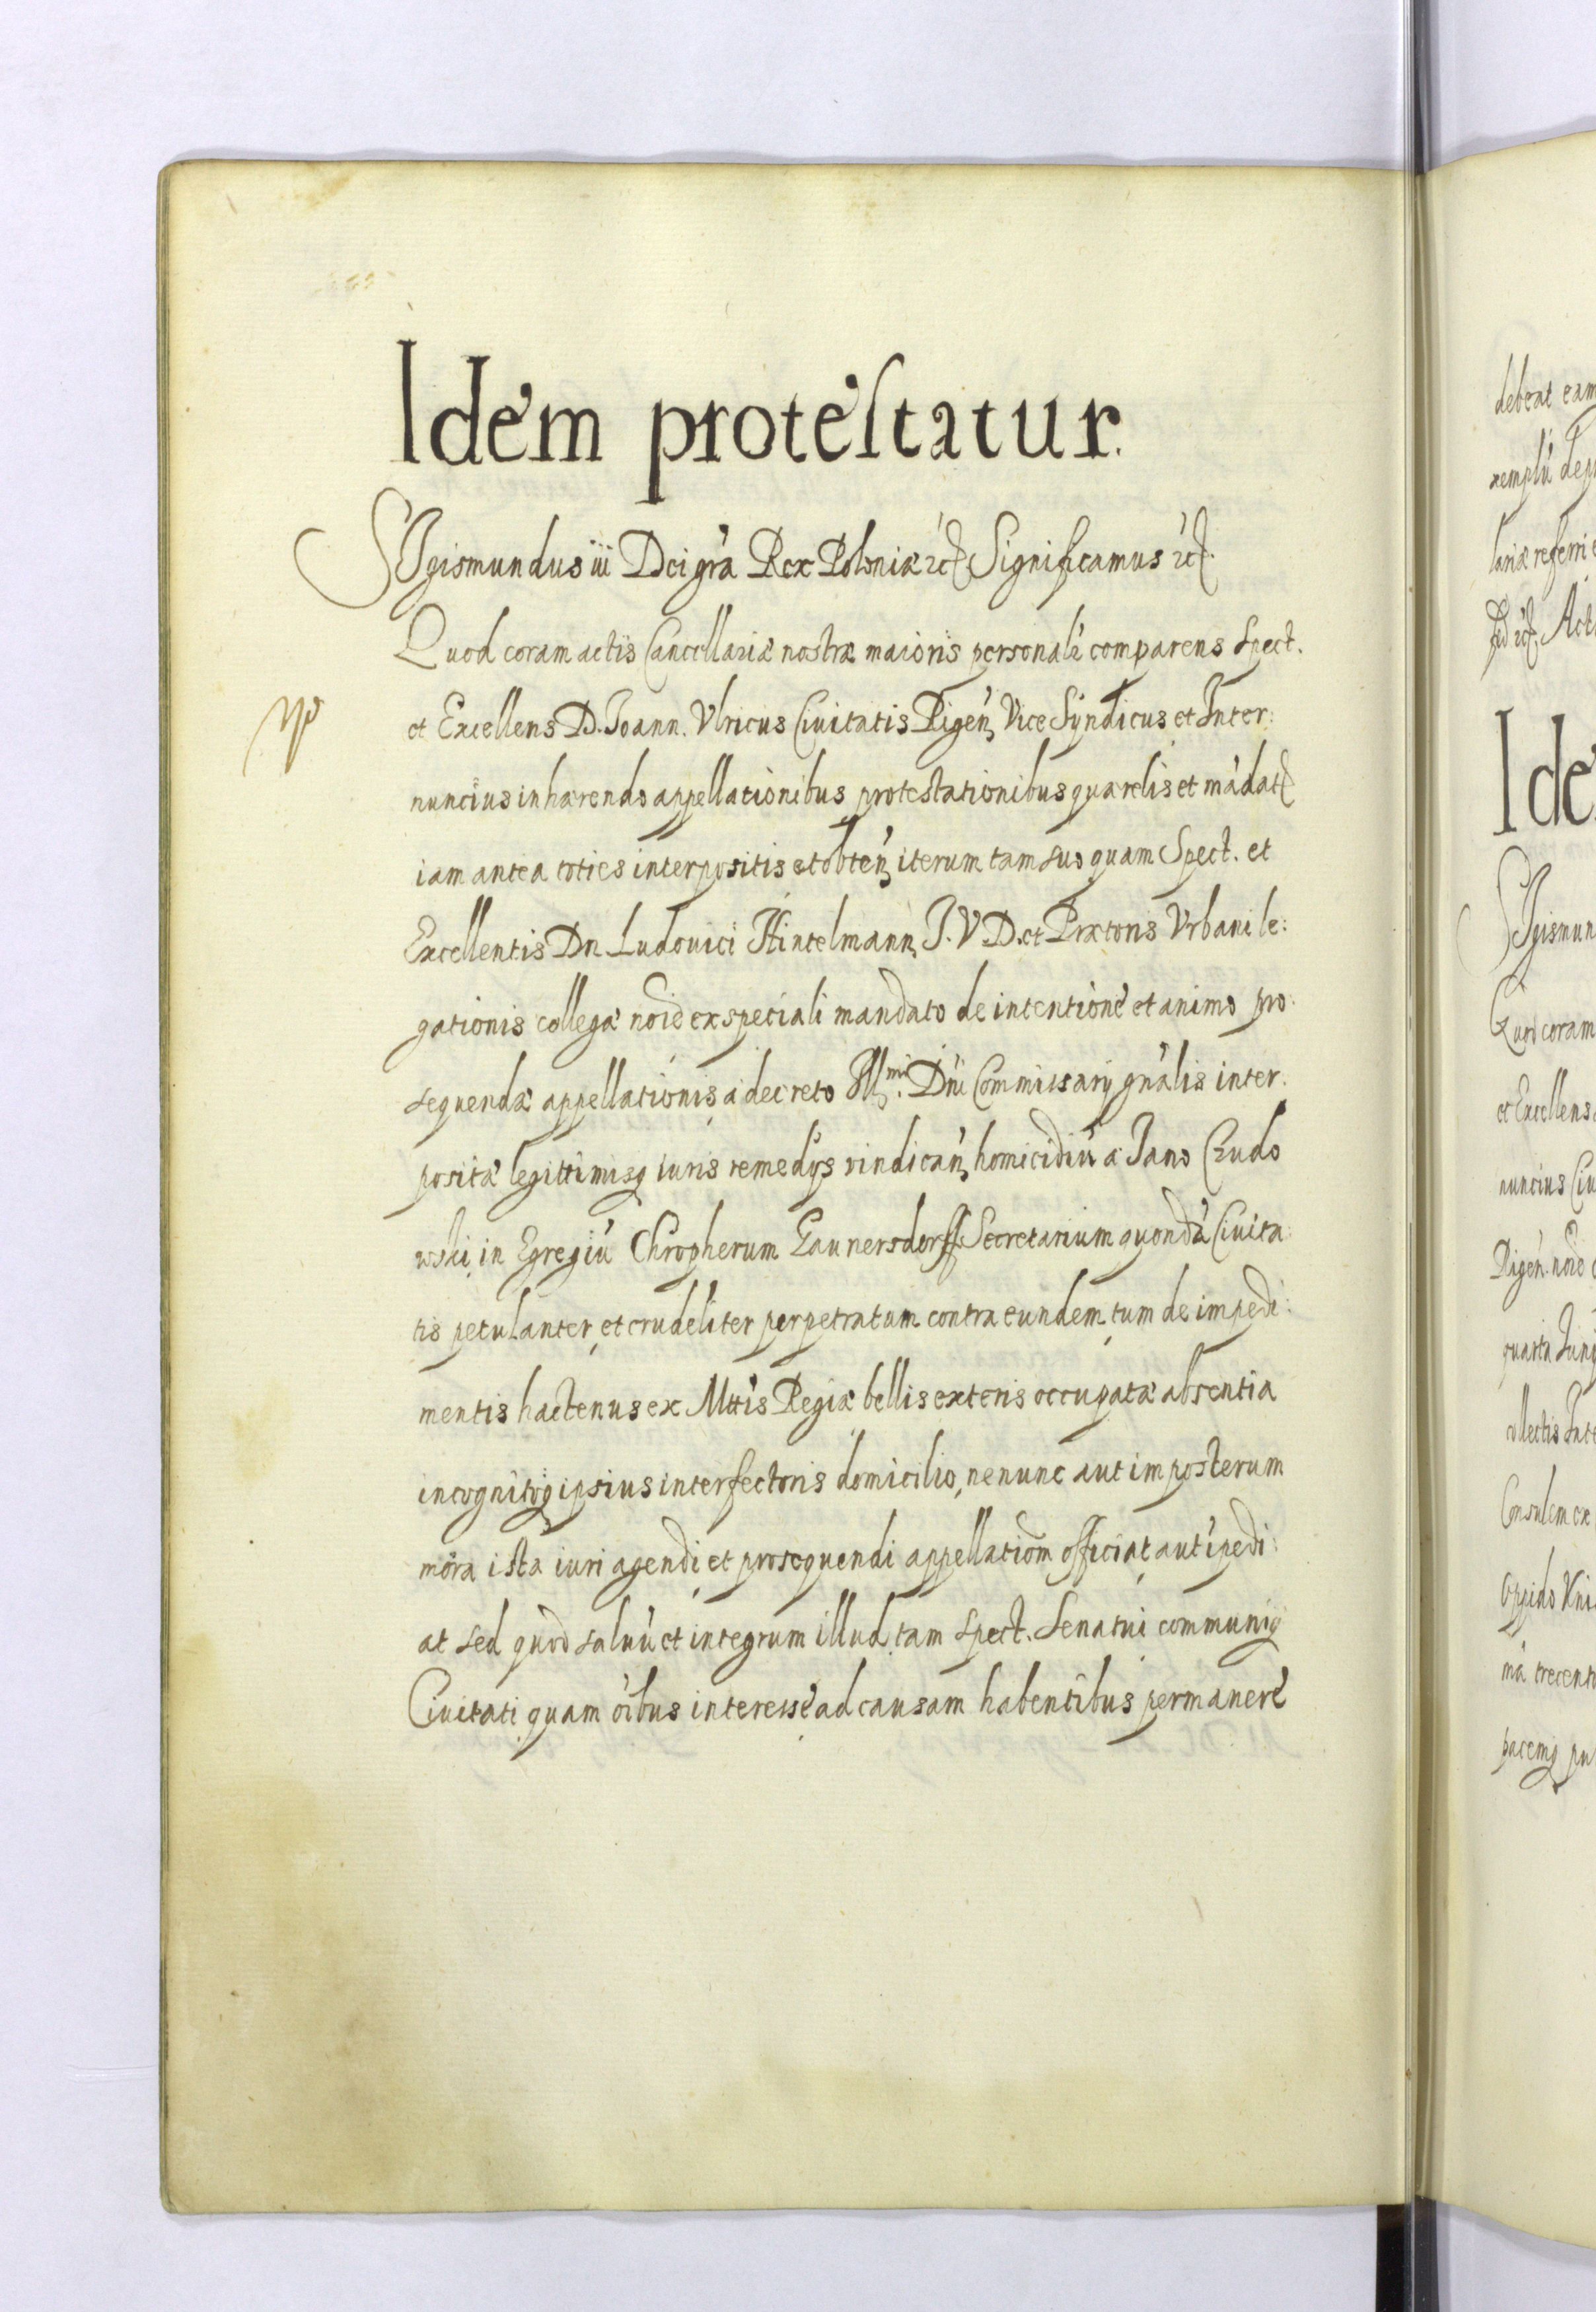 Idem protestatur.
Sigismundus iii Dei gr̃a Rex Poloniæ ꝛc̃ Significamus ꝛc̃.
Quod coram actis Cancellariæ nostræ maioris personalr̃ comparens Spect.
et Excellens D. Joann. Vlricus Ciuitatis Rigen̄ Vice Syndicus et Inter:
nuncius inhærendo appellationibus protestationibus quærelis et mādatꝭ
iam antea toties interpositis et obten̄ iterum tam suo quam Spect. et
Excellentis Dn. Ludouici Hintelmann J. V. D. et Prætoris Vrbani le:
gationis collegæ noīe ex speciali mandato de intentione et animo pro:
sequendæ appellationis, a decreto Illmi. Dn̄i Commissarij gn̄alis inter:
positæ legittimisq; iuris remedijs vindican̄ homicidiū a Jano Czudo
wski, in Egregiū Chrõpherum Launersdorff Secretarium quondā Ciuita:
tis petulanter, et crudeliter perpetratum contra eundem, tum de impedi:
mentis hactenus ex Mttis Regiæ bellis exteris occupatæ absentia
incognitoq; ipsius interfectoris domicilio, ne nunc aut imposterum
mora ista iuri agendi, et prosequendi appellatiom̄ officiat, aut īpedi:
at sed quod saluū et integrum illud, tam Spect. Senatui communiq;
Ciuitati, quam oībus interesse ad causam habentibus permanere
debeat eam
xemplū dep
lariæ referri
fid ꝛc̃. Act
Ide
Sigismun
Quod coram
et Excellens
nuncius Ciu
Rigen̄. noīe
quarta Juni
llectis
Consulem ex
Oppido
mā trecent
pacemq; pu